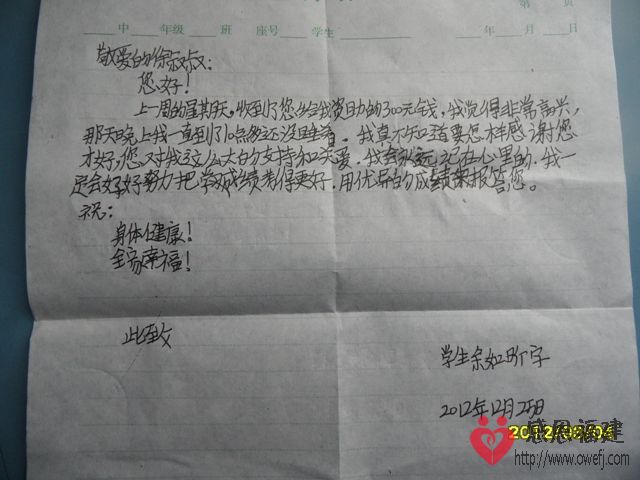 第 页
中 年级 班 座号 学生 年 月 日
敬爱的徐叔叔：
您好！
上一周的星期天，收到了您给我资助的300元钱，我觉得非常高兴，
那天晚上我一直到10点多还没睡着。我真不知道要怎样感谢您
才好，您对我这么大的支持和关爱，我会永远记在心里的，我一
定会好好努力把学习成绩考得更好，用优异的成绩来报答您。
祝：
身体健康！
全家幸福！
此致
学生余如
2012年12月25日
感恩福建
http://www.owefj.com